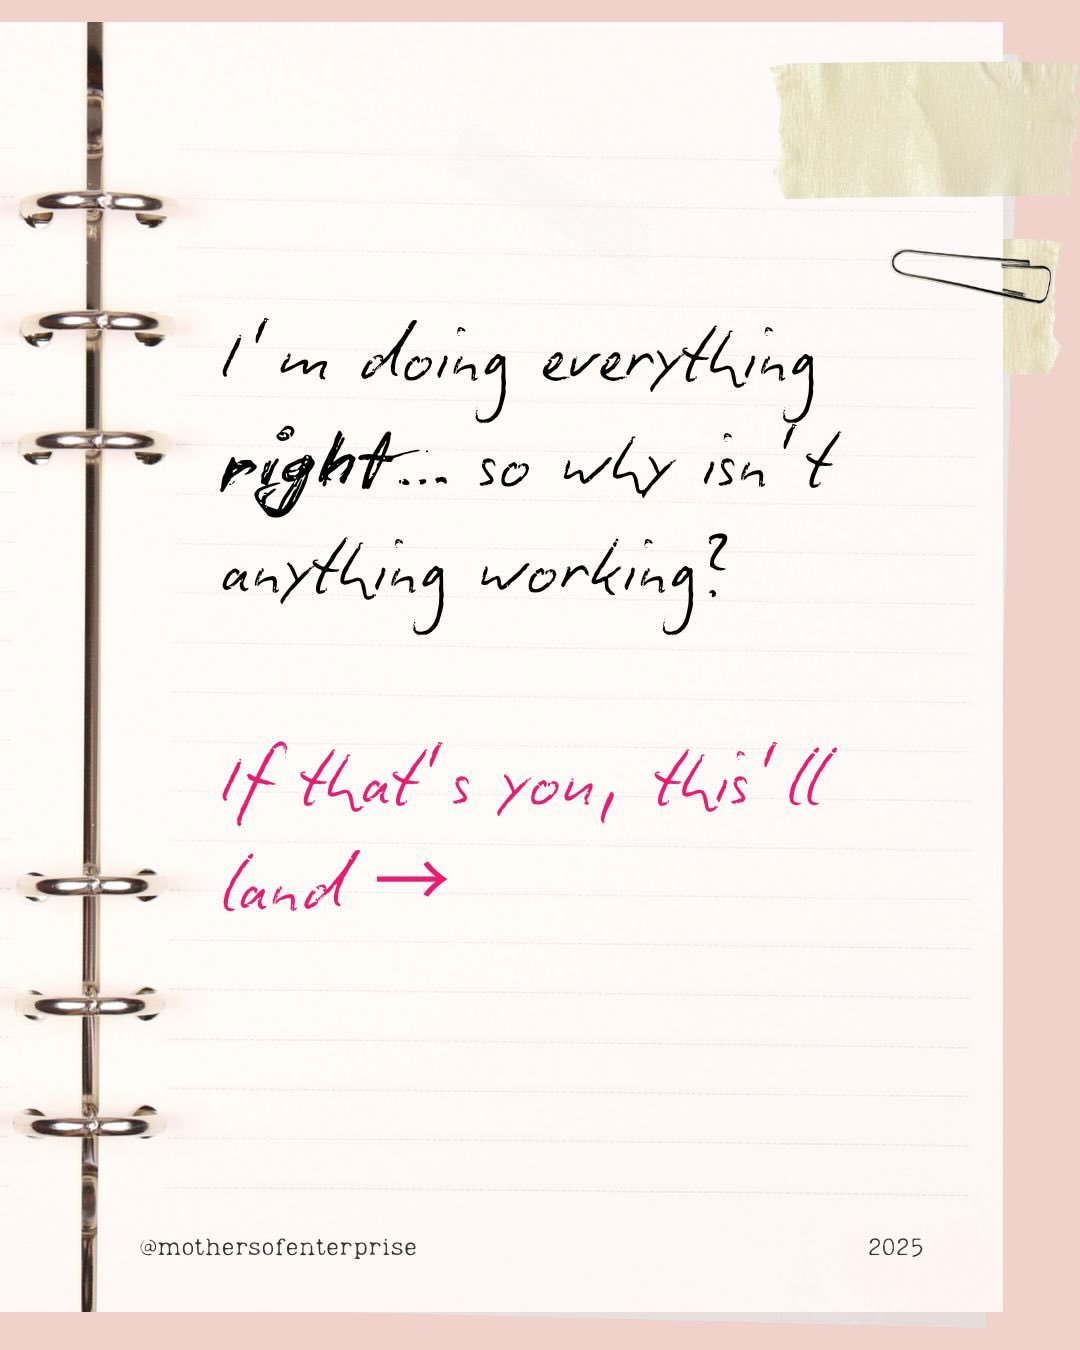 I'm doing everything
right... so why isn't
anything working?
If that's you, this'll
land →
@mothersofenterprise
2025